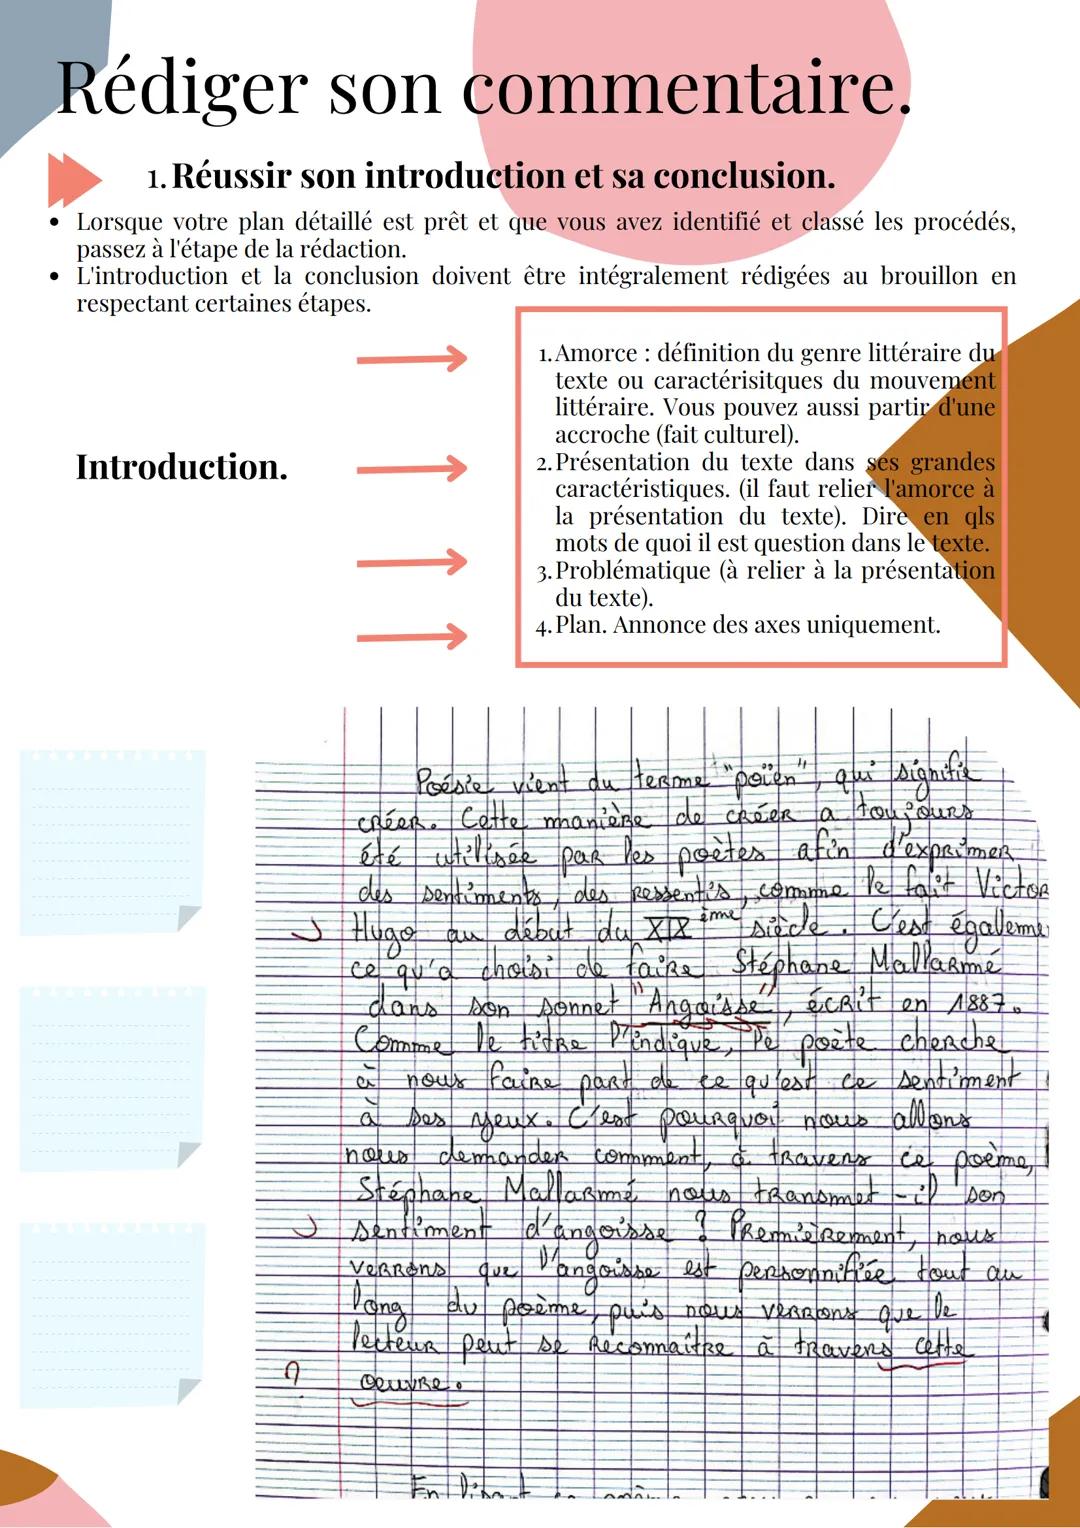 Rédiger son commentaire.
1. Réussir son introduction et sa conclusion.
• Lorsque votre plan détaillé est prêt et que vous avez identifié et classé les procédés,
passez à l'étape de la rédaction.
• L'introduction et la conclusion doivent être intégralement rédigées au brouillon en
respectant certaines étapes.
Introduction.
1. Amorce : définition du genre littéraire du
texte ou caractérisitques du mouvement
littéraire. Vous pouvez aussi partir d'une
accroche (fait culturel).
2. Présentation du texte dans ses grandes
caractéristiques. (il faut relier l'amorce à
la présentation du texte). Dire en qls
mots de quoi il est question dans le texte.
3. Problématique (à relier à la présentation
du texte).
4. Plan. Annonce des axes uniquement.
Poésie vient du terme "poïen", qui signifie
créer. Cette manière de créer a toujours
été utilisée par les poètes afin d'exprimer
des sentiments, des ressentis, comme le fait Victor
Hugo au début du XIXème siècle. C'est égaleme
ce qu'a choisi de faire Stéphane Mallarmé
dans son sonnet "Angoisse", écrit en 1887.
Comme le titre l'indique, le poète cherche
à nous faire part de ce qu'est ce sentiment
à ses yeux. C'est pourquoi nous allons
nous demander comment, à travers ce poème,
Stéphane Mallarmé nous transmet-il son
sentiment d'angoisse ? Premièrement, nous
verrons que l'angoisse est personnifiée tout au
long du poème, puis nous verrons que le
lecteur peut se reconnaître à travers cette
oeuvre.